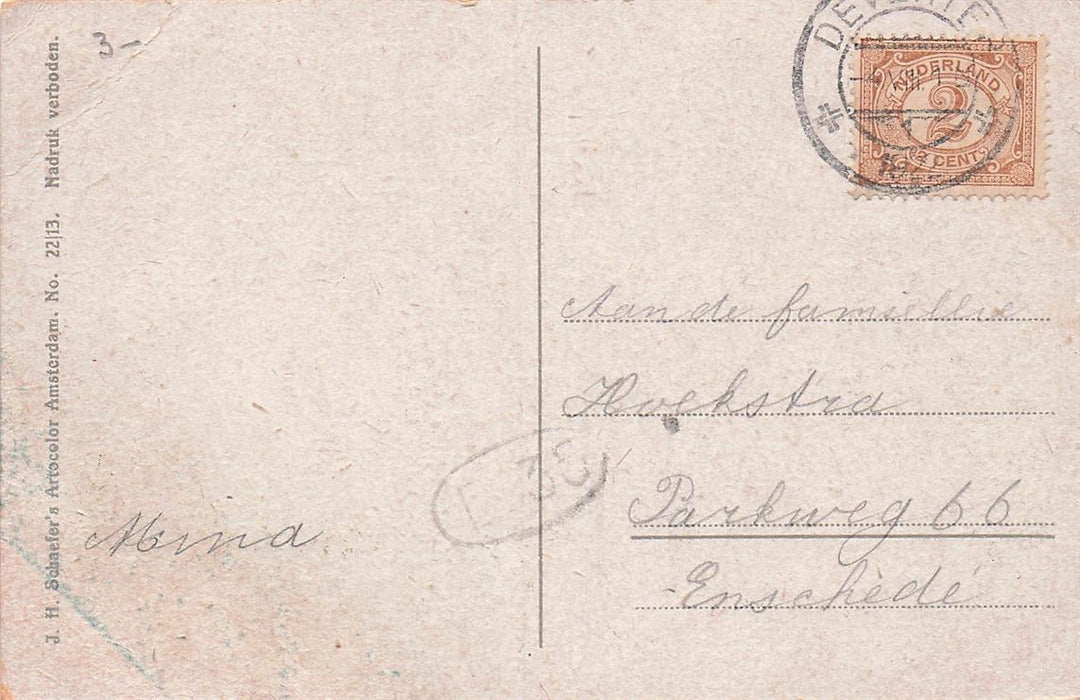 3-
J. H. Schaefer's Artocolor Amsterdam. No. 22|13. Nadruk verboden.
DEVENTER
NEDERLAND
2
CENT
Aan de famiellie
Hoekstra
Parkweg 66
Enschèdé
Mina